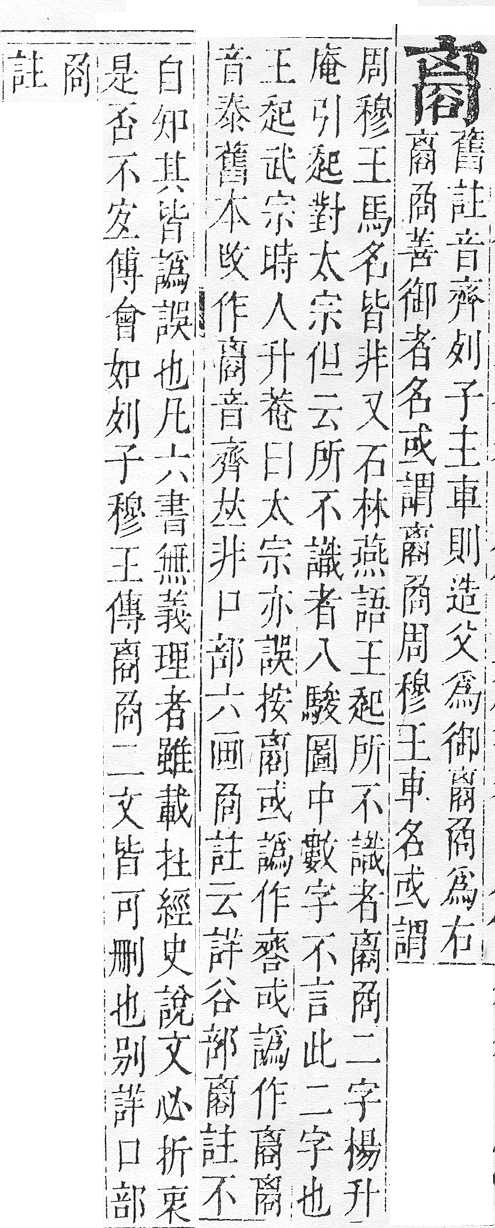 舊註音齊列子主車則造父爲御爲右
善御者名或謂周穆王車名或謂
周穆王馬名皆非又石林燕語王起所不識者二字楊升
庵引起對太宗但云所不識者八駿圖中數字不言此二字也
王起武宗時人升菴曰太宗亦誤按或譌作或譌作
音泰舊本改作音齊𠀤非口部六画註云詳谷部註不
自知其皆譌誤也凡六書無義理者雖載在經史說文必折衷
是否不宜傅會如列子穆王傳二文皆可刪也別詳口部
註